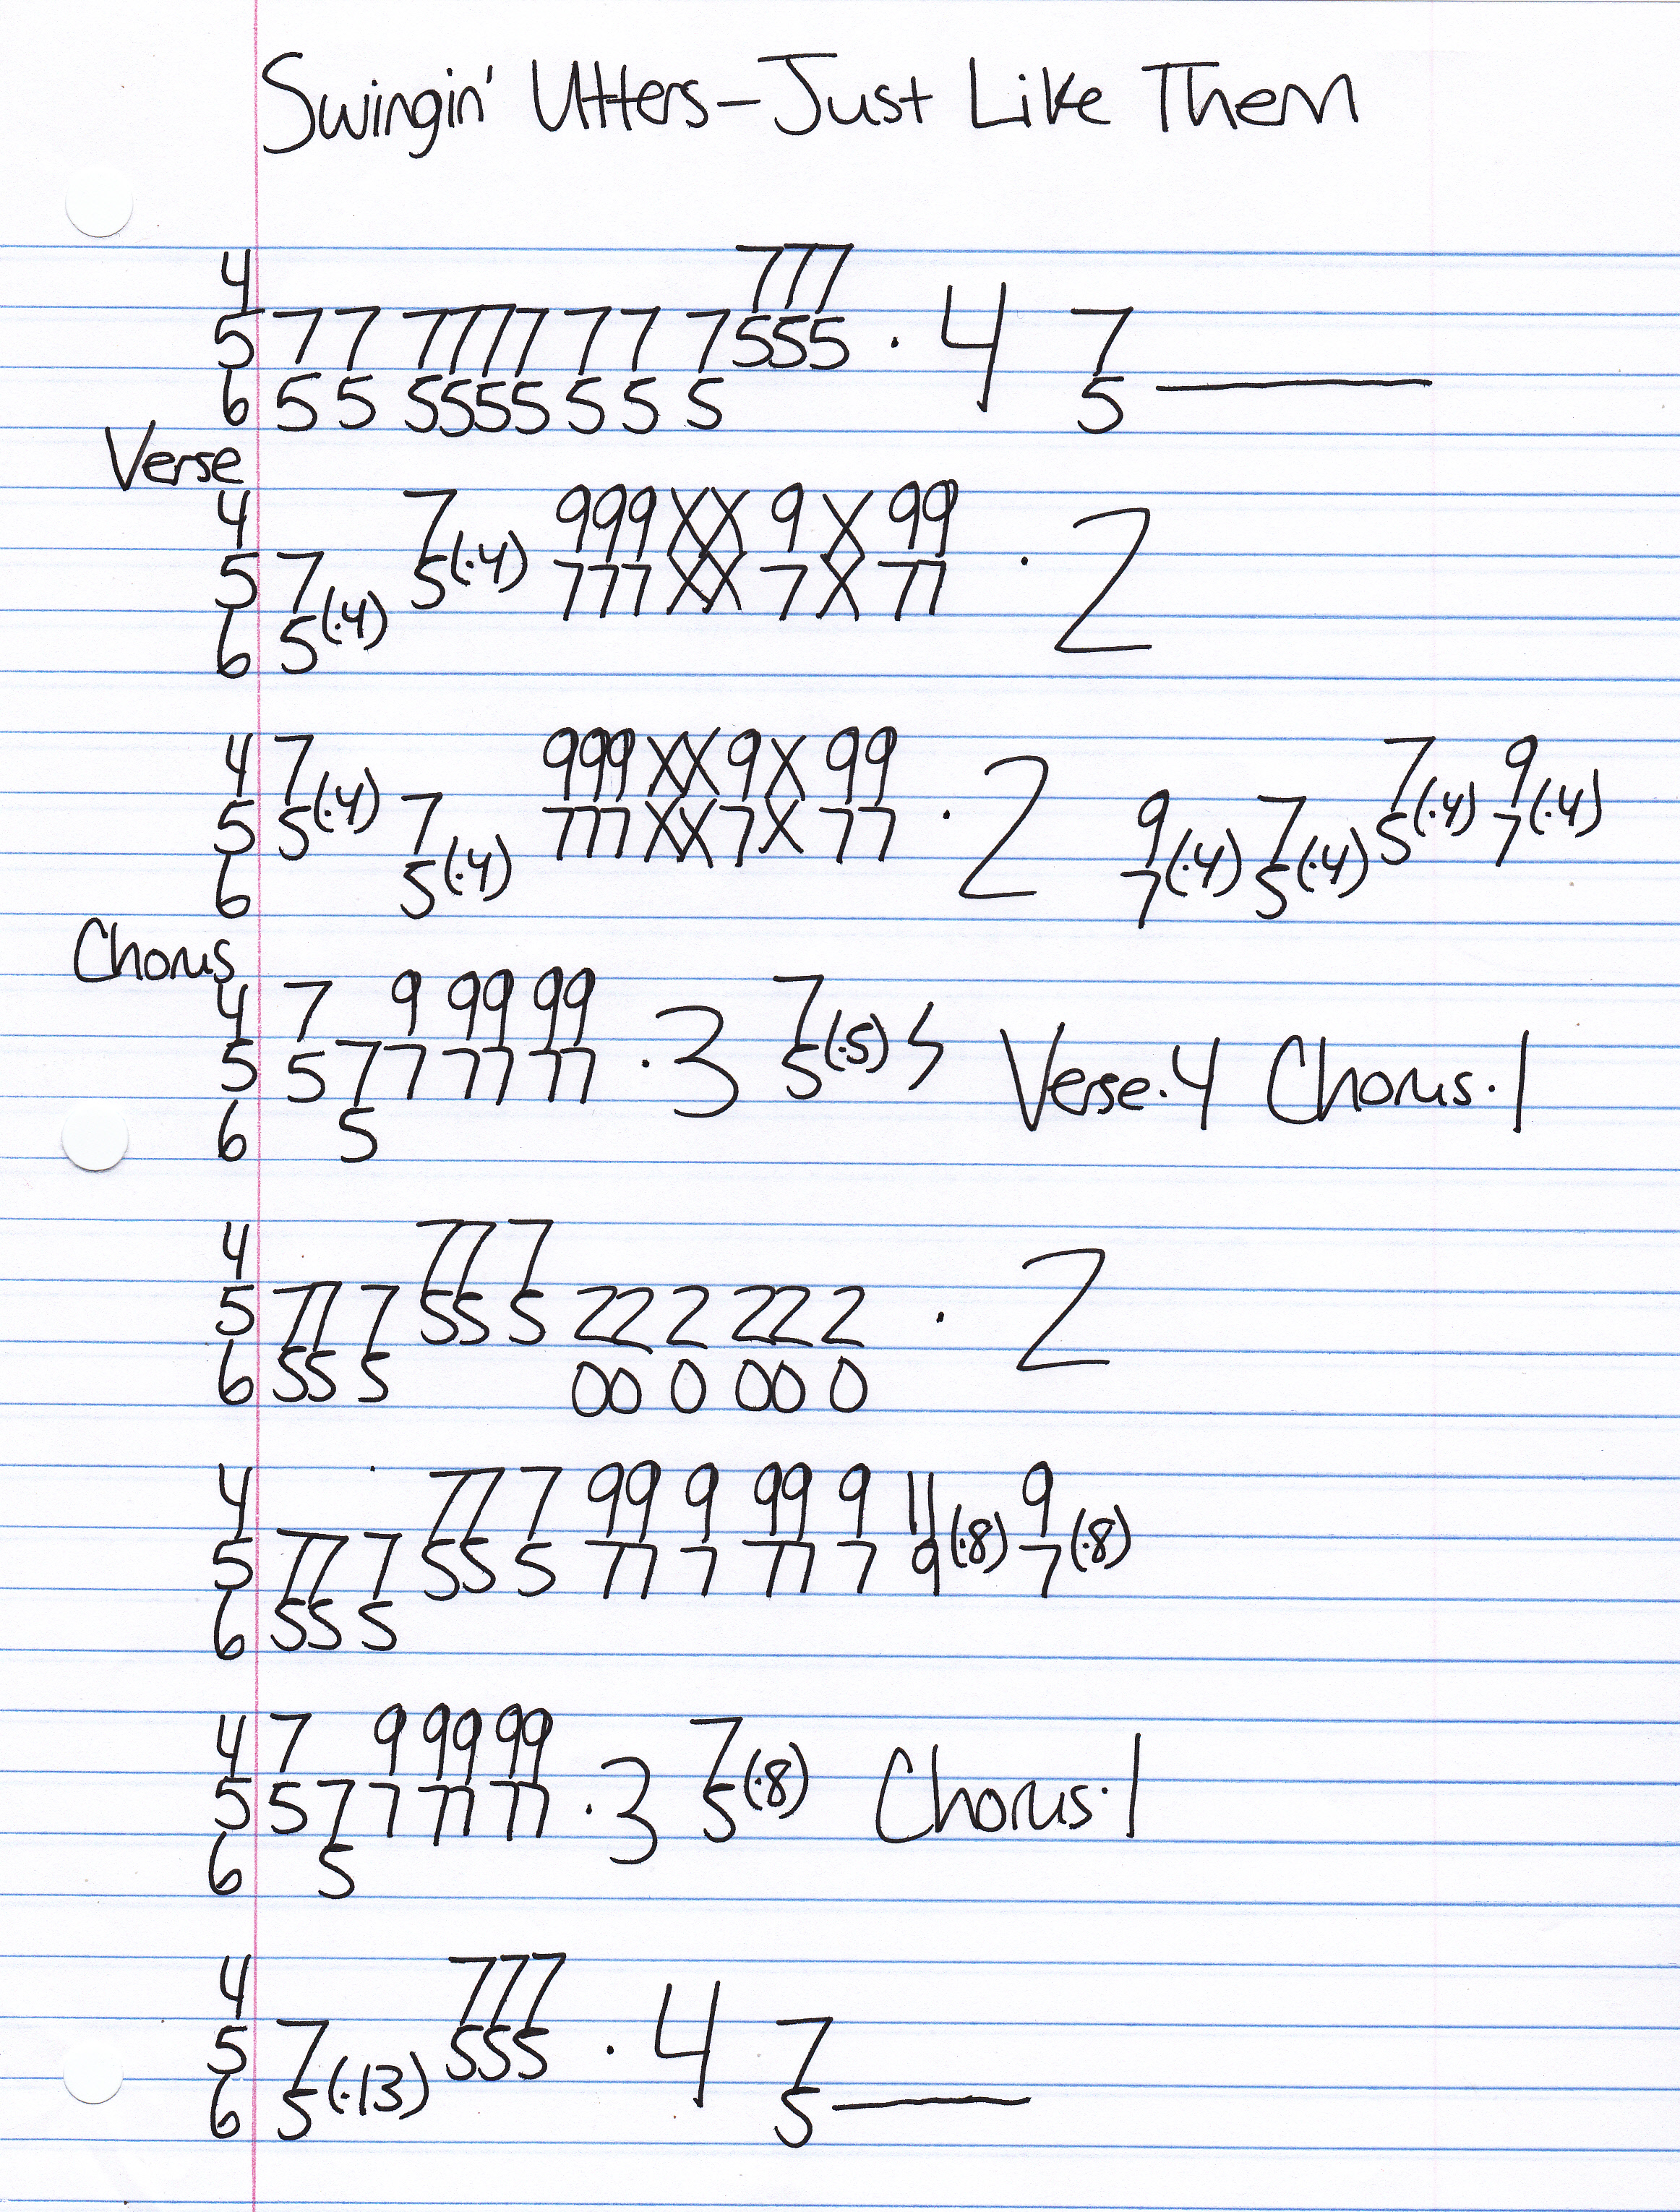 Swingin' Utters – Just Like Them
4 777
5 77 7777 7 7 7555 · 4 7
6 55 5555 5 5 5 5————
Verse
4 7 999XX 9 X 99
5 7 5(·4) 777XX 7 X 77 · 2
6 5(·4)
4 7 999XX9X 99 7 9
5 5(·4) 7 777XX7X 77 · 2 9 7 5(·4) 7(·4)
6 5(·4) 7(·4) 5(·4)
Chorus
4 7 9 99 99 7
5 5 7 7 77 77 · 3 5(·5) 4 Verse·4 Chorus·1
6 5
4 77 7
5 77 7 55 5 22 2 22 2 · 2
6 55 5 00 0 00 0
4 77 7 99 9 99 9 11 9
5 77 7 55 5 77 7 77 7 9(·8) 7(·8)
6 55 5
4 7 9 99 99 7
5 5 7 7 77 77 · 3 5(·8) Chorus·1
6 5
4 777
5 7 555 · 4 7
6 5(·13) 5————